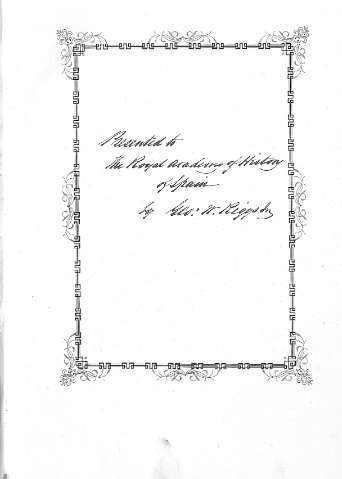 Presented to
the Royal Academy of History
of Spain
by Geo: W. Riggs Jr